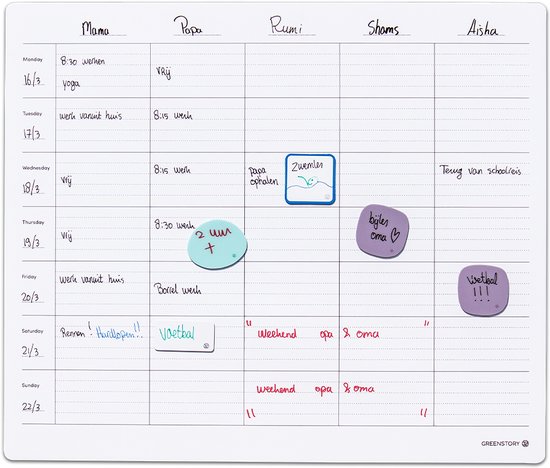 Mama Papa Rumi Shams Aisha
Monday
16/3
8:30 werken
yoga
vrij
Tuesday
17/3
werk vanuit huis
8:15 werk
Wednesday
18/3
vrij
8:15 werk
papa
ophalen
zwemles
Terug van schoolreis
Thursday
19/3
vrij
8:30 werk
2 uur
+
bijles
oma ♡
Friday
20/3
werk vanuit huis
Borrel werk
voetbal
!!!
Saturday
21/3
Rennen! Hardlopen!!
Voetbal
" weekend opa & oma "
Sunday
22/3
weekend opa & oma
" "
GREENSTORY